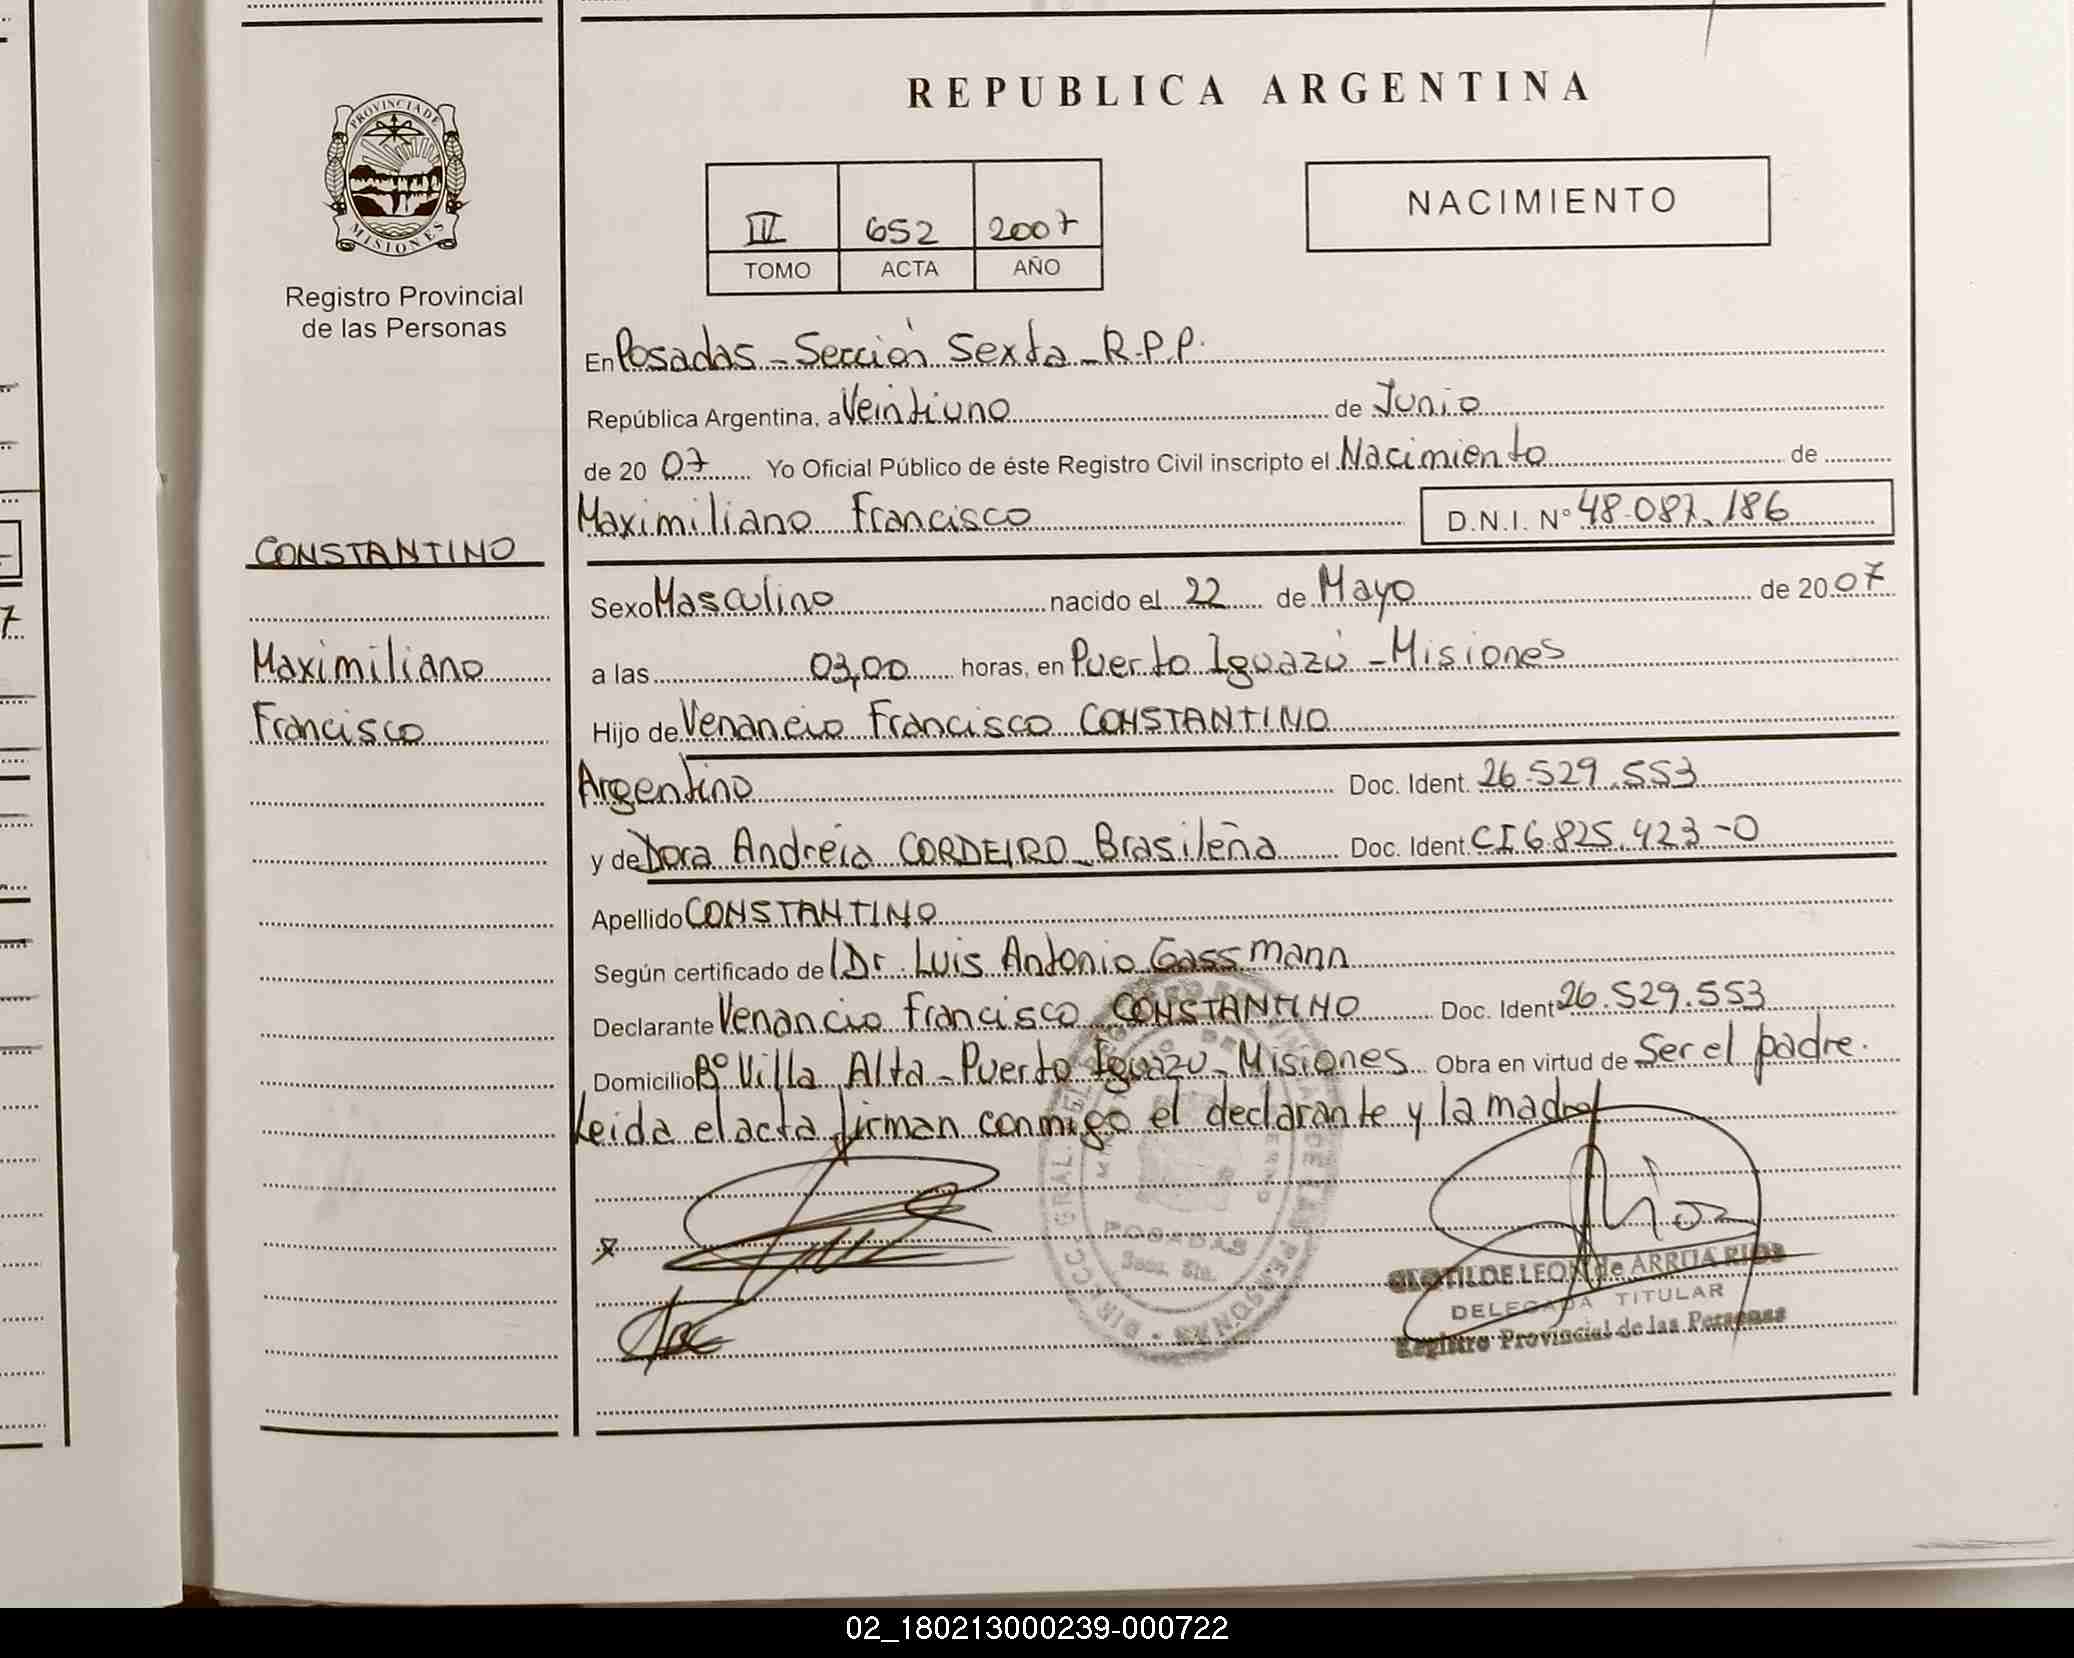 REPUBLICA ARGENTINA
PROVINCIA DE
MISIONES
Registro Provincial
de las Personas
NACIMIENTO
652 2007
TOMO ACTA AÑO
En Posadas - Sección Sexta - R.P.P.
República Argentina, a Veintiuno de Junio
de 20 07 Yo Oficial Público de éste Registro Civil inscripto el Nacimiento de
Maximiliano Francisco D.N.I. N° 48.087.186
CONSTANTINO
Maximiliano
Francisco
Sexo Masculino nacido el 22 de Mayo de 20 07
a las 03,00 horas, en Puerto Iguazú - Misiones
Hijo de Venancio Francisco CONSTANTINO
Argentino Doc. Ident. 26.529.553
y de Dora Andréia CORDEIRO - Brasileña Doc. Ident. CI 6.825.423-0
Apellido CONSTANTINO
Según certificado de Dr. Luis Antonio Gassmann
Declarante Venancio Francisco CONSTANTINO Doc. Ident 26.529.553
Domicilio Bº Villa Alta - Puerto Iguazu - Misiones Obra en virtud de Ser el padre.
Leida el acta firman conmigo el declarante y la madre
POSADAS
CLOTILDE LEON de ARRUA RIOS
DELEGADA TITULAR
Registro Provincial de las Personas
02_180213000239-000722